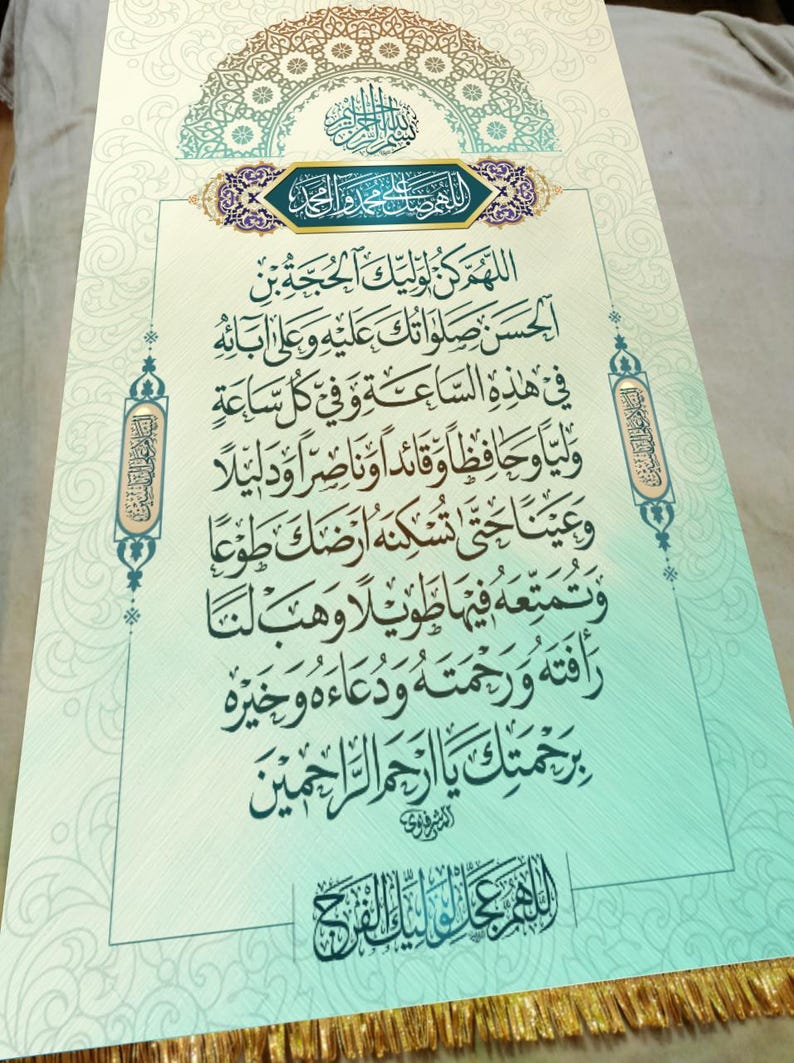 بسم الله الرحمن الرحيم
اللهم صل على محمد وال محمد
اللَّهُمَّ كُنْ لِوَلِيِّكَ ٱلْحُجَّةِ بْنِ
ٱلْحَسَنِ صَلَوَاتُكَ عَلَيْهِ وَعَلَىٰ آبَائِهِ
فِي هٰذِهِ السَّاعَةِ وَفِي كُلِّ سَاعَةٍ
وَلِيّاً وَحَافِظاً وَقَائِداً وَنَاصِراً وَدَلِيلًا
وَعَيْنَاً حَتَّىٰ تُسْكِنَهُ أَرْضَكَ طَوْعاً
وَتُمَتِّعَهُ فِيهَا طَوِيلًا وَهَبْ لَنَا
رَأْفَتَهُ وَرَحْمَتَهُ وَدُعَاءَهُ وَخَيْرَهُ
بِرَحْمَتِكَ يَا ارْحَمَ الرَّاحِمِينَ
المشرفاوي
اللهم عجل لوليك الفرج